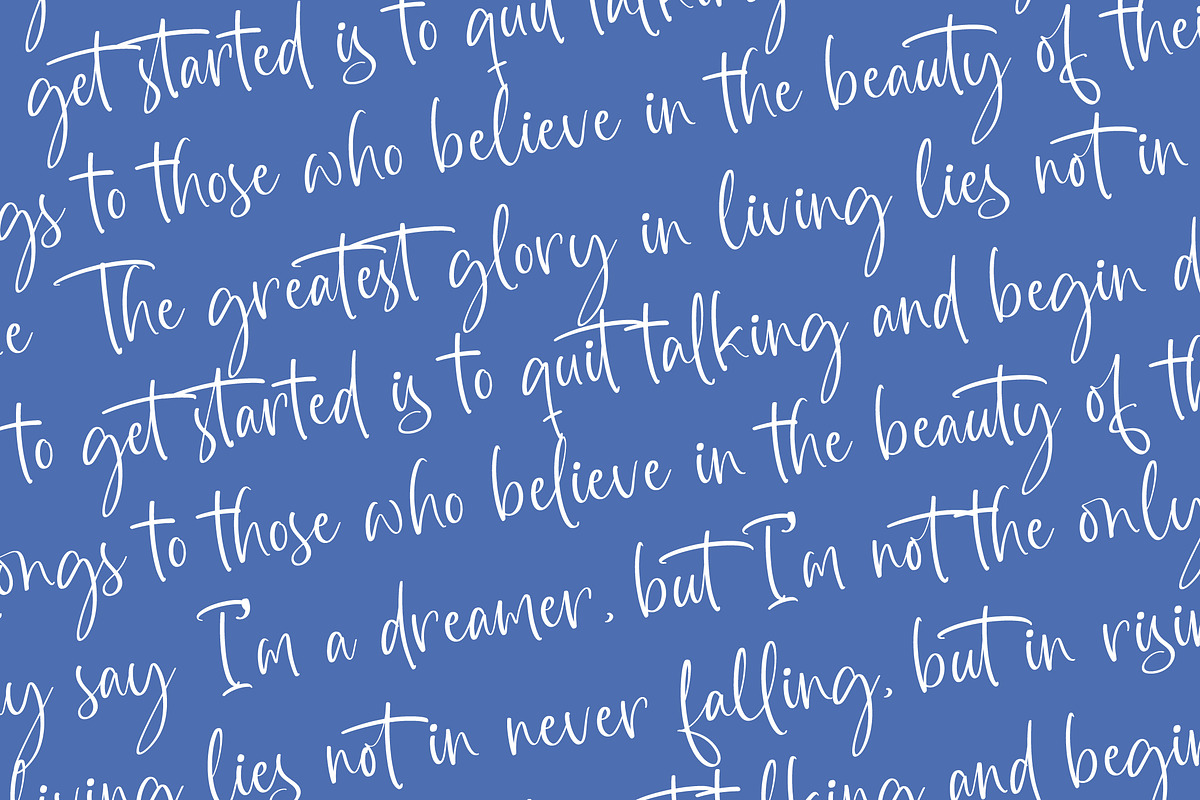 get started is to quit talking
to those who believe in the beauty of their
The greatest glory in living lies not in
to get started is to quit talking and begin
ongs to those who believe in the beauty of
say I'm a dreamer, but I'm not the only
living lies not in never falling, but in risin
talking and begin